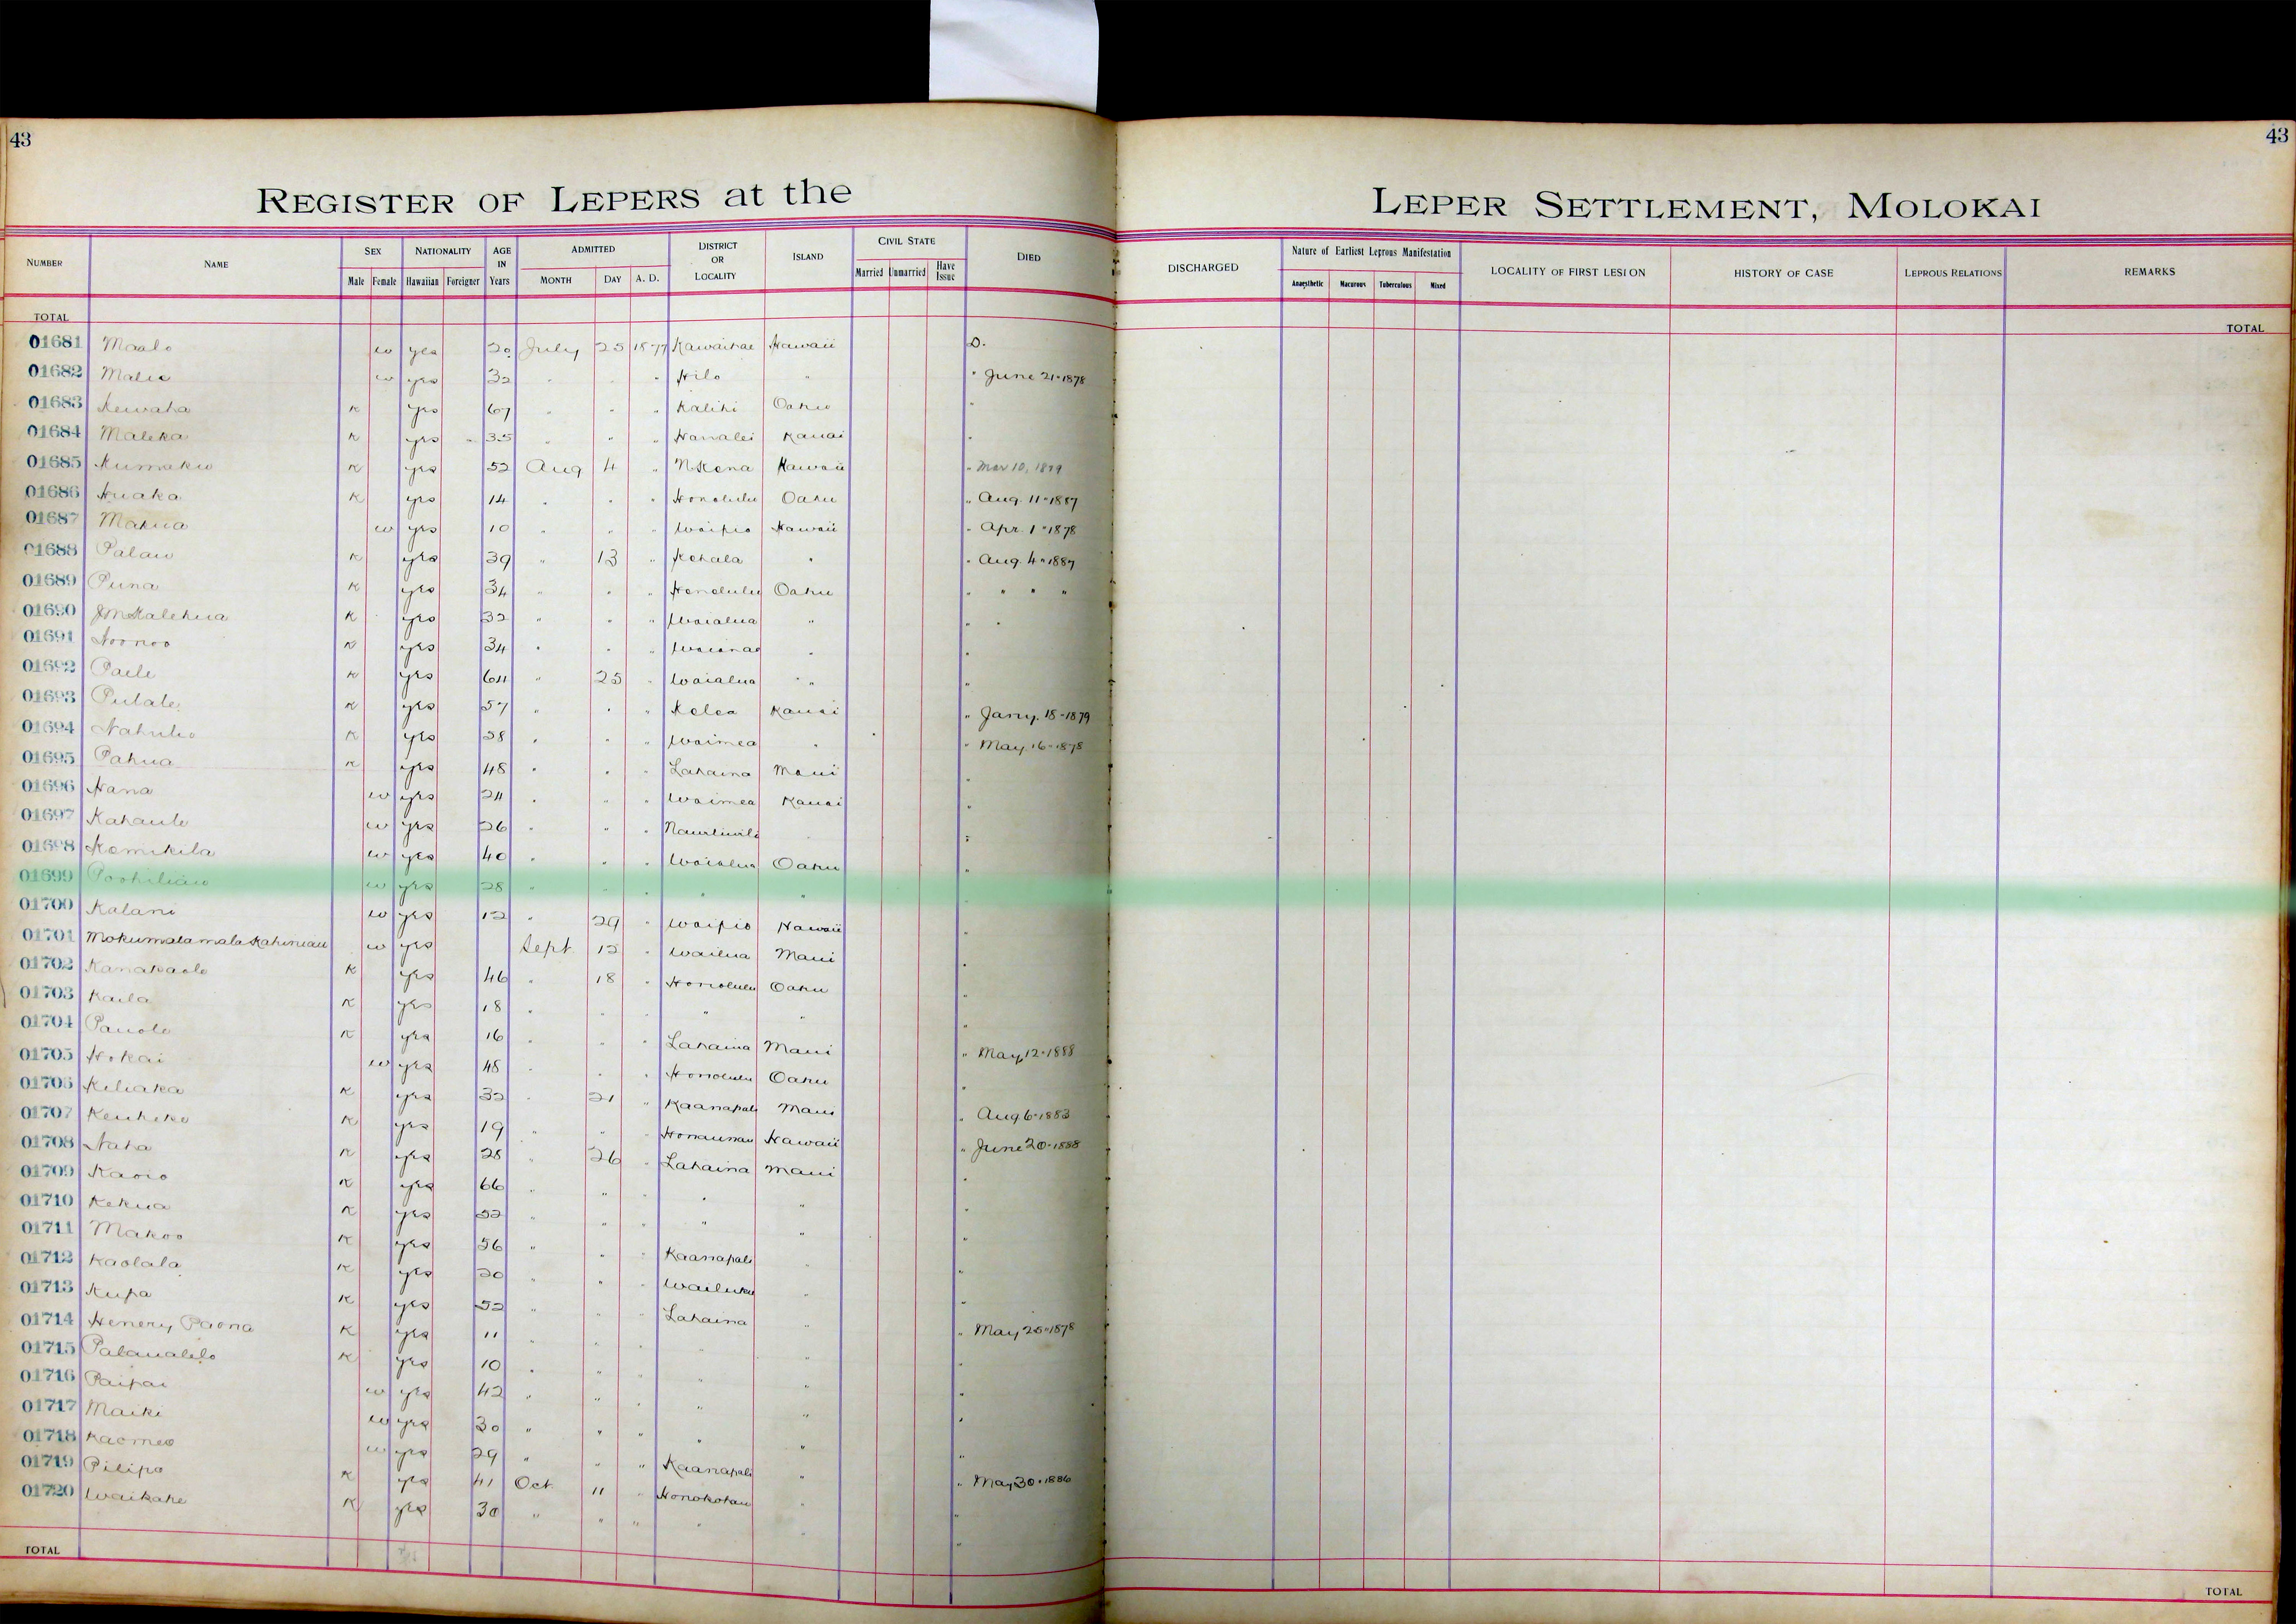 43
43
REGISTER OF LEPERS at the LEPER SETTLEMENT, MOLOKAI
NUMBER NAME SEX Male Female NATIONALITY Hawaiian Foreigner AGE IN Years ADMITTED MONTH DAY A. D. DISTRICT OR LOCALITY ISLAND CIVIL STATE Married Unmarried Have Issue DIED DISCHARGED Nature of Earliest Leprous Manifestation Anaesthetic Macurous Tuberculous Mixed LOCALITY OF FIRST LESION HISTORY OF CASE LEPROUS RELATIONS REMARKS
TOTAL TOTAL
01681 Maalo w yes 20 July 25 1877 Kawaihae Hawaii D.
01682 Malie w yes 32 " " " Hilo " " June 21-1878
01683 Kewaha K yes 67 " " " Kalihi Oahu "
01684 Maleka K yes 35 " " " Hanalei Kauai "
01685 Kumaku K yes 52 Aug 4 " N Kona Hawaii " Mar 10, 1879
01686 Huaka K yes 14 " " " Honolulu Oahu " Aug. 11-1887
01687 Makua w yes 10 " " " Waipio Hawaii " Apr. 1-1878
01688 Palau K yes 39 " 13 " Kohala " " Aug. 4-1887
01689 Puna K yes 34 " " " Honolulu Oahu " " " "
01690 J M Kalehua K yes 32 " " " Waialua " " "
01691 Noonoo K yes 34 " " " Waianae " "
01692 Paele K yes 64 " 25 " Waialua " " "
01693 Pulale K yes 57 " " " Kolea Kauai " Jany. 18-1879
01694 Nahulu K yes 28 " " " Waimea " " May. 16-1878
01695 Pahua K yes 48 " " " Lahaina Maui "
01696 Nana w yes 24 " " " Waimea Kauai "
01697 Kahaule w yes 26 " " " Nawiliwili "
01698 Kamikila w yes 40 " " " Waialua Oahu "
01699 Poohiliau w yes 28 " " " " " "
01700 Kalani w yes 12 " 29 " Waipio Hawaii "
01701 Mokumalamala Kahiniau w yes Sept. 12 " Wailua Maui "
01702 Kanakaole K yes 46 " 18 " Honolulu Oahu "
01703 Kaila K yes 18 " " " " " "
01704 Pauole K yes 16 " " " Lahaina Maui " May 12-1888
01705 Hokai w yes 48 " " " Honolulu Oahu "
01706 Kiliaka K yes 32 " 21 " Kaanapali Maui " Aug 6-1883
01707 Keuheke K yes 19 " " " Honaunau Hawaii " June 20-1888
01708 Naha K yes 28 " 26 " Lahaina Maui "
01709 Kaoio K yes 66 " " " " " "
01710 Kekua K yes 52 " " " " " "
01711 Makoo K yes 56 " " " Kaanapali " "
01712 Kaolala K yes 20 " " " Wailuku " "
01713 Kupa K yes 52 " " " Lahaina " " May 25-1878
01714 Henery Paona K yes 11 " " " " " "
01715 Palaualelo K yes 10 " " " " " "
01716 Paipai w yes 42 " " " " " "
01717 Maiki w yes 30 " " " " " "
01718 Kaomea w yes 29 " " " Kaanapali " " May 30-1886
01719 Pilipo K yes 41 Oct. 11 " Honokohau " "
01720 Waikahe K yes 30 " " " " " "
TOTAL TOTAL